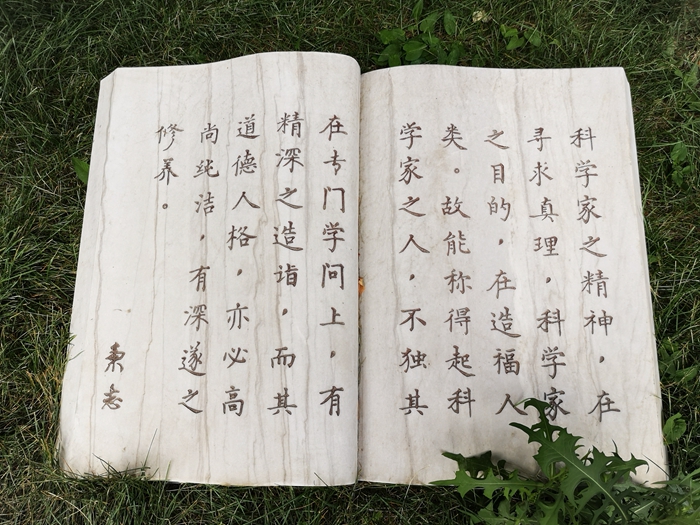 科学家之精神，在
寻求真理，科学家
之目的，在造福人
类。故能称得起科
学家之人，不独其
在专门学问上，有
精深之造诣，而其
道德人格，亦必高
尚纯洁，有深邃之
修养。
秉志